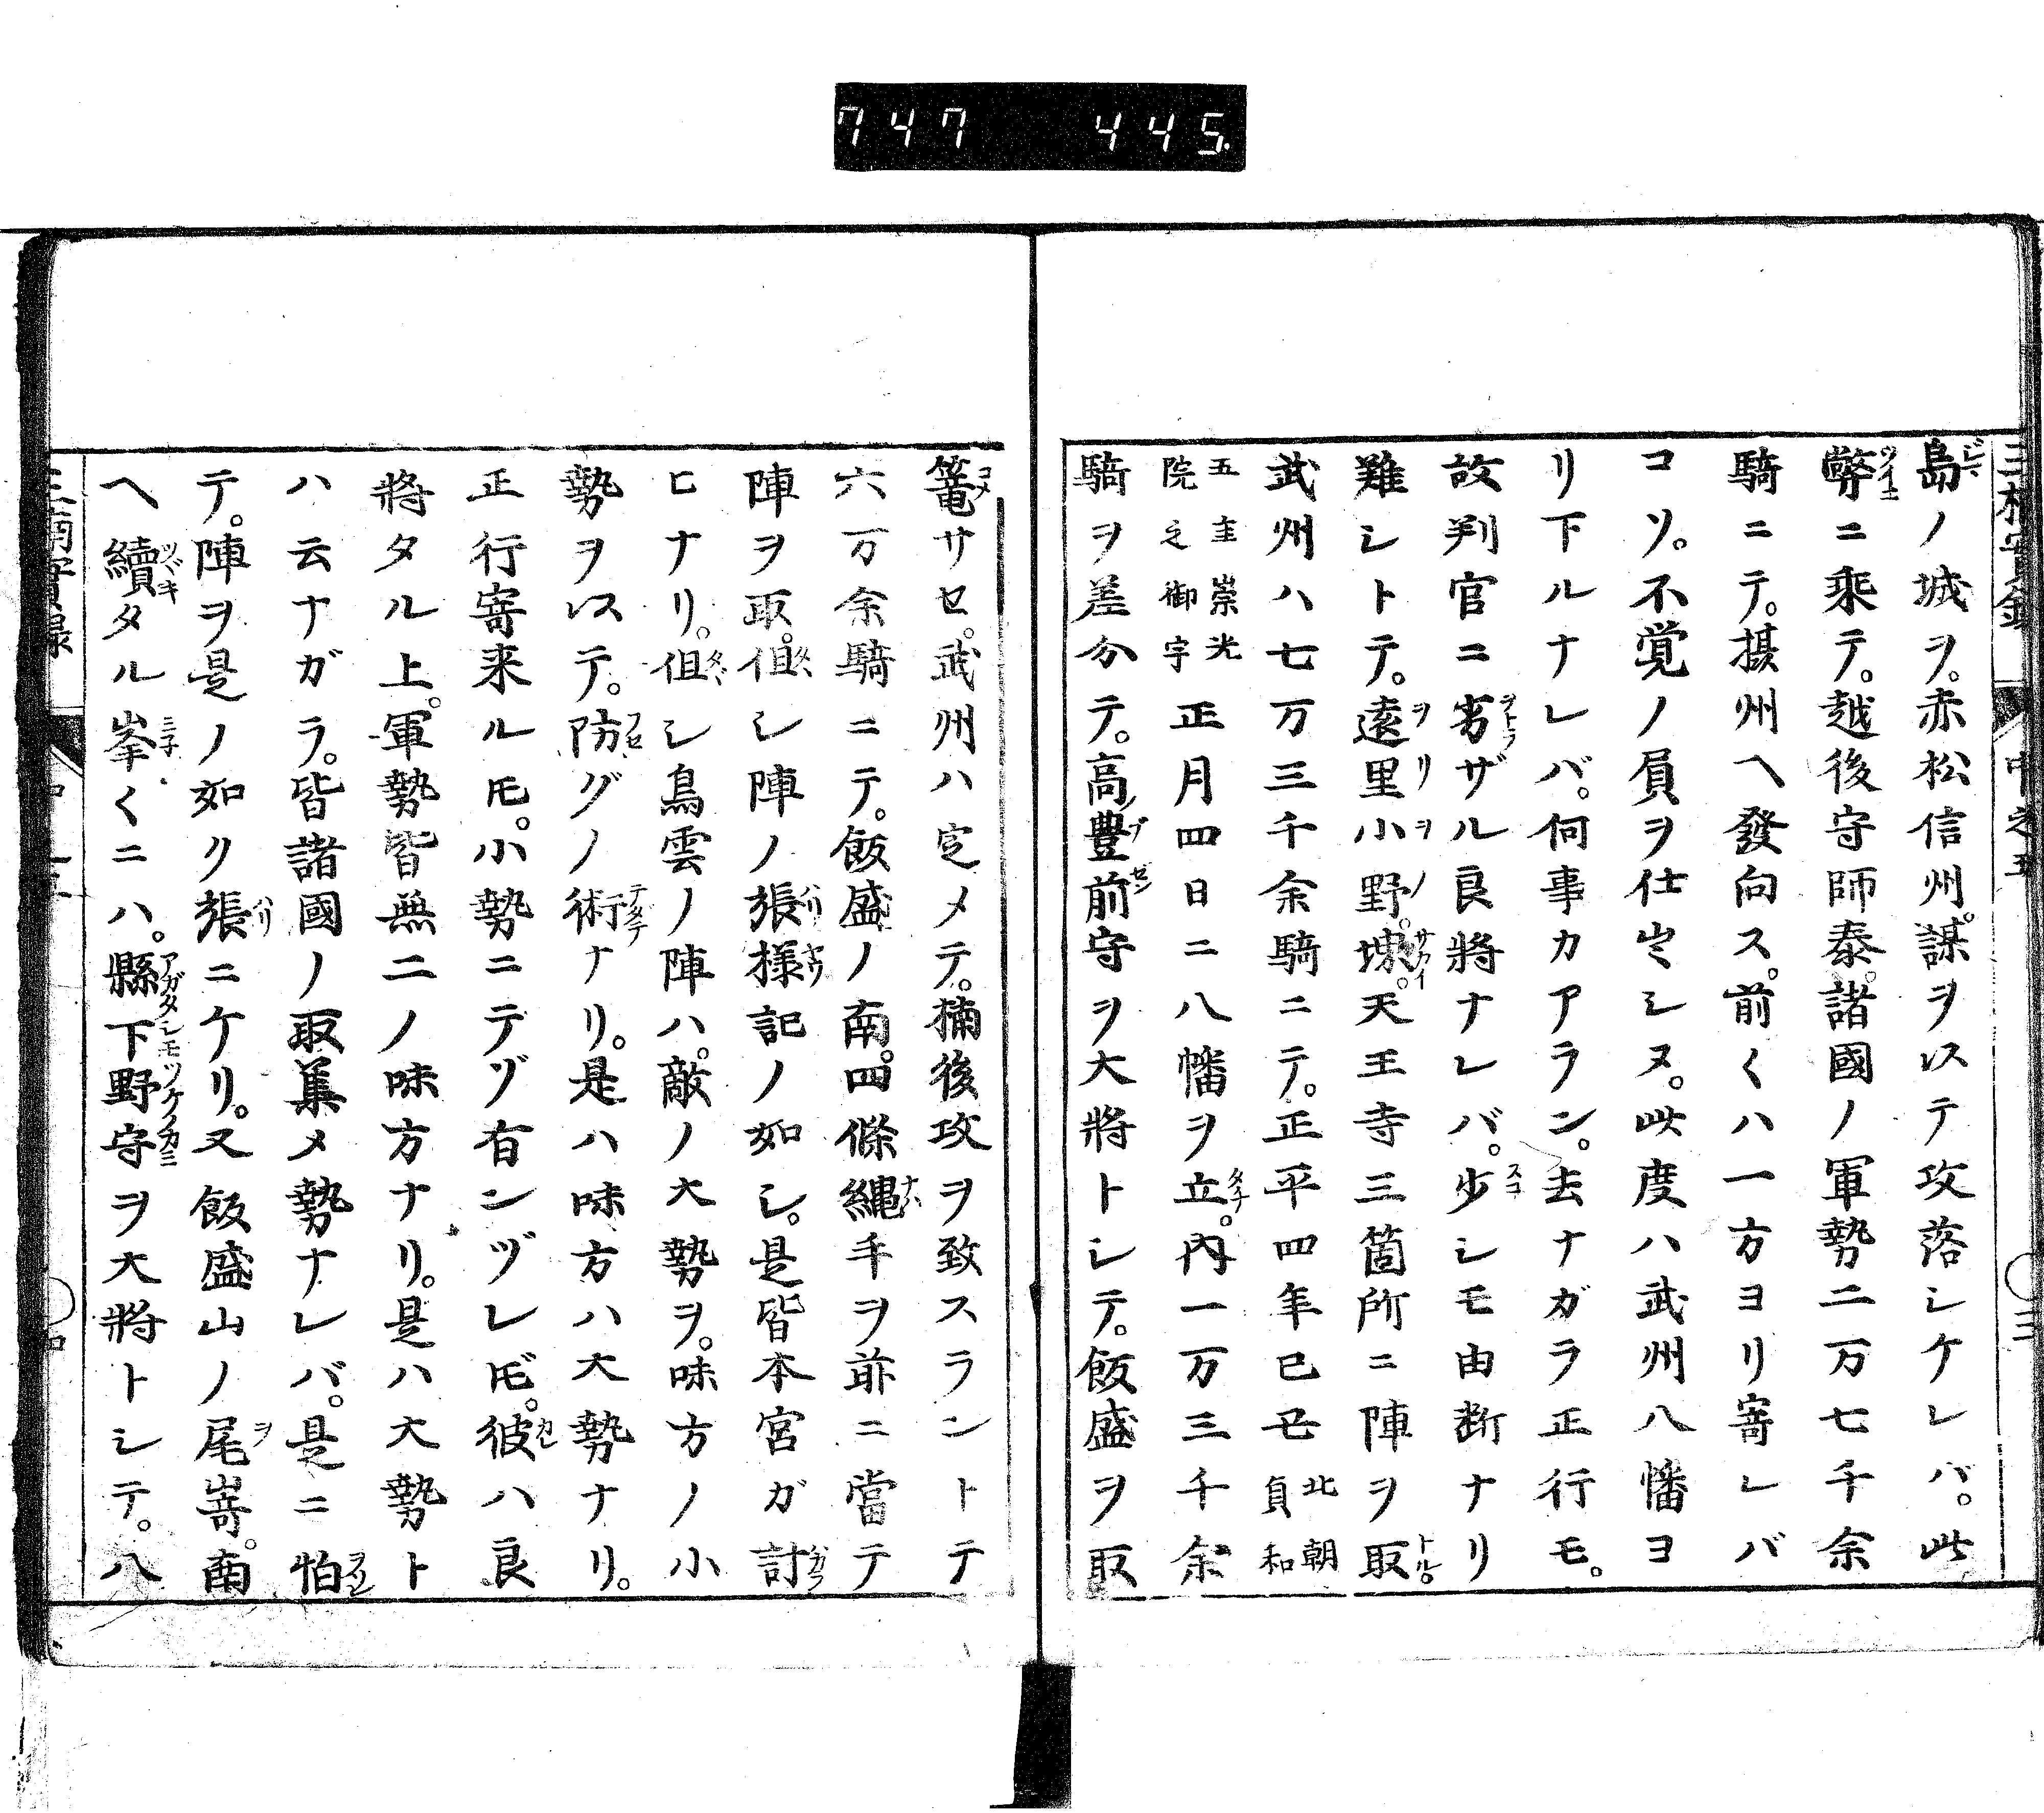 747 445
島ノ城ヲ。赤松信州。謀ヲ以テ攻落シケレバ。此
弊ニ乗テ。越後守師泰。諸國ノ軍勢二万七千余
騎ニテ。摂州ヘ發向ス。前〱ハ一方ヨリ寄レバ
コソ。不覚ノ員ヲ仕出シヌ。此度ハ武州八幡ヨ
リ下ルナレバ。何事カアラン。去ナガラ正行モ。
故判官ニ劣ザル良將ナレバ。少シモ由断ナリ
難シトテ。遠里小野。堺。天王寺三箇所ニ陣ヲ取
武州ハ七万三千余騎ニテ。正平四年已丑北朝貞和
五圭崇光院之御宇正月四日ニ八幡ヲ立。内一万三千余
騎ヲ差分テ。高豊前守ヲ大將トシテ。飯盛ヲ取
篭サセ。武州ハ定メテ。楠後攻ヲ致スラントテ
六万余騎ニテ。飯盛ノ南。四條縄手ヲ前ニ當テ
陣ヲ取。但シ陣ノ張様記ノ如シ。是皆本宮ガ討
ヒナリ。但シ鳥雲ノ陣ハ。敵ノ大勢ヲ。味方ノ小
勢ヲ以テ。防グノ術ナリ。是ハ味方ハ大勢ナリ。
正行寄来ル𪜈。小勢ニテヅ有ンヅレ𪜈。彼ハ良
將タル上。軍勢皆無二ノ味方ナリ。是ハ大勢ト
ハ云ナガラ。皆諸國ノ取集メ勢ナレバ。是ニ怕
テ。陣ヲ是ノ如ク張ニケリ。又飯盛山ノ尾嵜。南
ヘ續タル峯〱ニハ。縣下野守ヲ大將トシテ。八